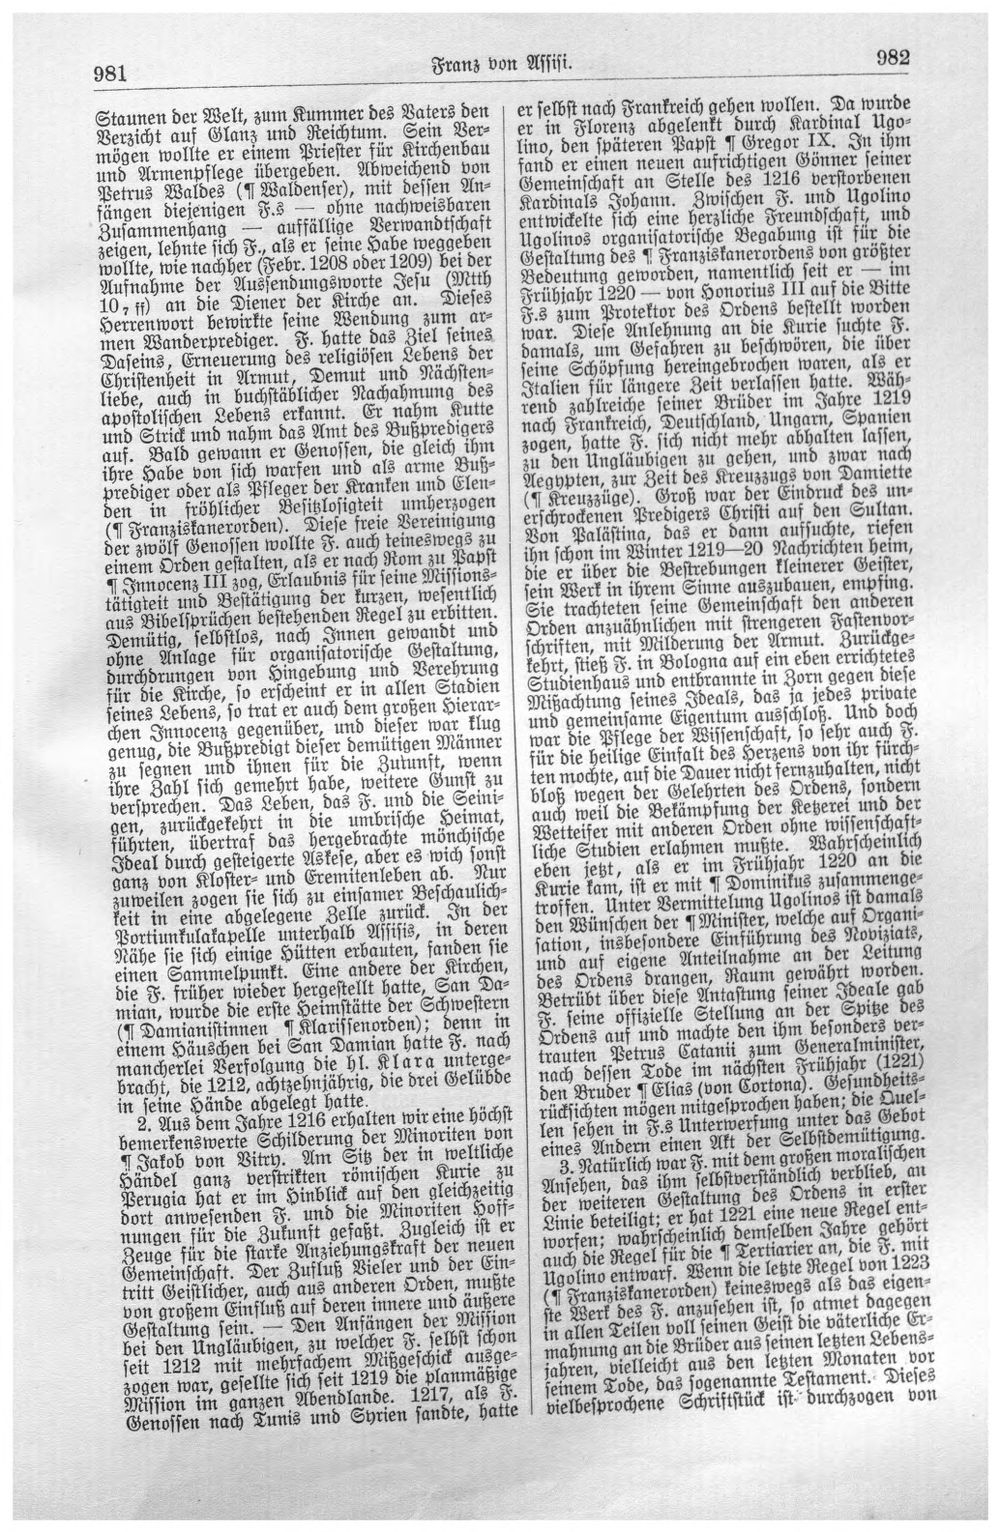 981
Franz von Assisi.
982
Staunen der Welt, zum Kummer des Vaters den
Verzicht auf Glanz und Reichtum. Sein Ver-
mögen wollte er einem Priester für Kirchenbau
und Armenpflege übergeben. Abweichend von
Petrus Waldes (¶ Waldenser), mit dessen An-
fängen diejenigen F.s — ohne nachweisbaren
Zusammenhang — auffällige Verwandtschaft
zeigen, lehnte sich F., als er seine Habe weggeben
wollte, wie nachher (Febr. 1208 oder 1209) bei der
Aufnahme der Aussendungsworte Jesu (Mtth
10 7 ff) an die Diener der Kirche an. Dieses
Herrenwort bewirkte seine Wendung zum ar-
men Wanderprediger. F. hatte das Ziel seines
Daseins, Erneuerung des religiösen Lebens der
Christenheit in Armut, Demut und Nächsten-
liebe, auch in buchstäblicher Nachahmung des
apostolischen Lebens erkannt. Er nahm Kutte
und Strick und nahm das Amt des Bußpredigers
auf. Bald gewann er Genossen, die gleich ihm
ihre Habe von sich warfen und als arme Buß-
prediger oder als Pfleger der Kranken und Elen-
den in fröhlicher Besitzlosigkeit umherzogen
(¶ Franziskanerorden). Diese freie Vereinigung
der zwölf Genossen wollte F. auch keineswegs zu
einem Orden gestalten, als er nach Rom zu Papst
¶ Innocenz III zog, Erlaubnis für seine Missions-
tätigkeit und Bestätigung der kurzen, wesentlich
aus Bibelsprüchen bestehenden Regel zu erbitten.
Demütig, selbstlos, nach Innen gewandt und
ohne Anlage für organisatorische Gestaltung,
durchdrungen von Hingebung und Verehrung
für die Kirche, so erscheint er in allen Stadien
seines Lebens, so trat er auch dem großen Hierar-
chen Innocenz gegenüber, und dieser war klug
genug, die Bußpredigt dieser demütigen Männer
zu segnen und ihnen für die Zukunft, wenn
ihre Zahl sich gemehrt habe, weitere Gunst zu
versprechen. Das Leben, das F. und die Seini-
gen, zurückgekehrt in die umbrische Heimat,
führten, übertraf das hergebrachte mönchische
Ideal durch gesteigerte Askese, aber es wich sonst
ganz von Kloster- und Eremitenleben ab. Nur
zuweilen zogen sie sich zu einsamer Beschaulich-
keit in eine abgelegene Zelle zurück. In der
Portiunkulakapelle unterhalb Assisis, in deren
Nähe sie sich einige Hütten erbauten, fanden sie
einen Sammelpunkt. Eine andere der Kirchen,
die F. früher wieder hergestellt hatte, San Da-
mian, wurde die erste Heimstätte der Schwestern
(¶ Damianistinnen ¶ Klarissenorden); denn in
einem Häuschen bei San Damian hatte F. nach
mancherlei Verfolgung die hl. Klara unterge-
bracht, die 1212, achtzehnjährig, die drei Gelübde
in seine Hände abgelegt hatte.
2. Aus dem Jahre 1216 erhalten wir eine höchst
bemerkenswerte Schilderung der Minoriten von
¶ Jakob von Vitry. Am Sitz der in weltliche
Händel ganz verstrikten römischen Kurie zu
Perugia hat er im Hinblick auf den gleichzeitig
dort anwesenden F. und die Minoriten Hoff-
nungen für die Zukunft gefaßt. Zugleich ist er
Zeuge für die starke Anziehungskraft der neuen
Gemeinschaft. Der Zufluß Vieler und der Ein-
tritt Geistlicher, auch aus anderen Orden, mußte
von großem Einfluß auf deren innere und äußere
Gestaltung sein. — Den Anfängen der Mission
bei den Ungläubigen, zu welcher F. selbst schon
seit 1212 mit mehrfachem Mißgeschick ausge-
zogen war, gesellte sich seit 1219 die planmäßige
Mission im ganzen Abendlande. 1217, als F.
Genossen nach Tunis und Syrien sandte, hatte
er selbst nach Frankreich gehen wollen. Da wurde
er in Florenz abgelenkt durch Kardinal Ugo-
lino, den späteren Papst ¶ Gregor IX. In ihm
fand er einen neuen aufrichtigen Gönner seiner
Gemeinschaft an Stelle des 1216 verstorbenen
Kardinals Johann. Zwischen F. und Ugolino
entwickelte sich eine herzliche Freundschaft, und
Ugolinos organisatorische Begabung ist für die
Gestaltung des ¶ Franziskanerordens von größter
Bedeutung geworden, namentlich seit er — im
Frühjahr 1220 — von Honorius III auf die Bitte
F.s zum Protektor des Ordens bestellt worden
war. Diese Anlehnung an die Kurie suchte F.
damals, um Gefahren zu beschwören, die über
seine Schöpfung hereingebrochen waren, als er
Italien für längere Zeit verlassen hatte. Wäh-
rend zahlreiche seiner Brüder im Jahre 1219
nach Frankreich, Deutschland, Ungarn, Spanien
zogen, hatte F. sich nicht mehr abhalten lassen,
zu den Ungläubigen zu gehen, und zwar nach
Aegypten, zur Zeit des Kreuzzugs von Damiette
(¶ Kreuzzüge). Groß war der Eindruck des un-
erschrockenen Predigers Christi auf den Sultan.
Von Palästina, das er dann aufsuchte, riefen
ihn schon im Winter 1219—20 Nachrichten heim,
die er über die Bestrebungen kleinerer Geister,
sein Werk in ihrem Sinne auszubauen, empfing.
Sie trachteten seine Gemeinschaft den anderen
Orden anzuähnlichen mit strengeren Fastenvor-
schriften, mit Milderung der Armut. Zurückge-
kehrt, stieß F. in Bologna auf ein eben errichtetes
Studienhaus und entbrannte in Zorn gegen diese
Mißachtung seines Ideals, das ja jedes private
und gemeinsame Eigentum ausschloß. Und doch
war die Pflege der Wissenschaft, so sehr auch F.
für die heilige Einfalt des Herzens von ihr fürch-
ten mochte, auf die Dauer nicht fernzuhalten, nicht
bloß wegen der Gelehrten des Ordens, sondern
auch weil die Bekämpfung der Ketzerei und der
Wetteifer mit anderen Orden ohne wissenschaft-
liche Studien erlahmen mußte. Wahrscheinlich
eben jetzt, als er im Frühjahr 1220 an die
Kurie kam, ist er mit ¶ Dominikus zusammenge-
troffen. Unter Vermittelung Ugolinos ist damals
den Wünschen der ¶ Minister, welche auf Organi-
sation, insbesondere Einführung des Noviziats,
und auf eigene Anteilnahme an der Leitung
des Ordens drangen, Raum gewährt worden.
Betrübt über diese Antastung seiner Ideale gab
F. seine offizielle Stellung an der Spitze des
Ordens auf und machte den ihm besonders ver-
trauten Petrus Catanii zum Generalminister,
nach dessen Tode im nächsten Frühjahr (1221)
den Bruder ¶ Elias (von Cortona). Gesundheits-
rücksichten mögen mitgesprochen haben; die Quel-
len sehen in F.s Unterwerfung unter das Gebot
eines Andern einen Akt der Selbstdemütigung.
3. Natürlich war F. mit dem großen moralischen
Ansehen, das ihm selbstverständlich verblieb, an
der weiteren Gestaltung des Ordens in erster
Linie beteiligt; er hat 1221 eine neue Regel ent-
worfen; wahrscheinlich demselben Jahre gehört
auch die Regel für die ¶ Tertiarier an, die F. mit
Ugolino entwarf. Wenn die letzte Regel von 1223
(¶ Franziskanerorden) keineswegs als das eigen-
ste Werk des F. anzusehen ist, so atmet dagegen
in allen Teilen voll seinen Geist die väterliche Er-
mahnung an die Brüder aus seinen letzten Lebens-
jahren, vielleicht aus den letzten Monaten vor
seinem Tode, das sogenannte Testament. Dieses
vielbesprochene Schriftstück ist durchzogen von